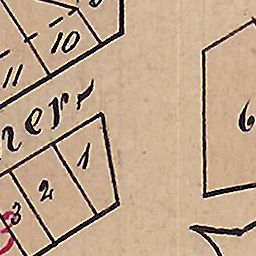 10
11
ner
1
2
3
6